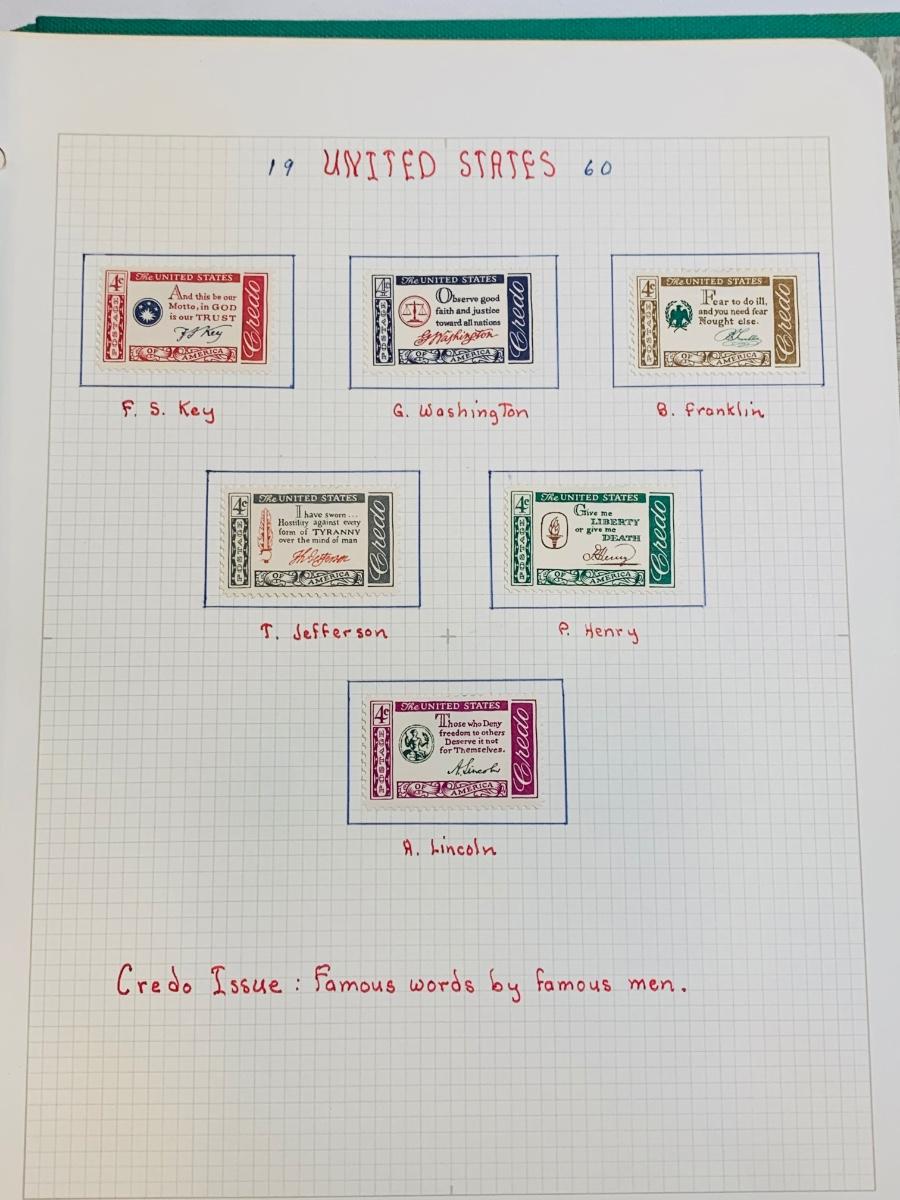 19 UNITED STATES 60
4c
The UNITED STATES
POSTAGE
And this be our
Motto, in GOD
is our TRUST
F S Key
Credo
OF AMERICA
4c
The UNITED STATES
POSTAGE
Observe good
faith and justice
toward all nations
G Washington
Credo
OF AMERICA
4c
The UNITED STATES
POSTAGE
Fear to do ill,
and you need fear
Nought else.
B Franklin
Credo
OF AMERICA
F. S. Key
G. Washington
B. Franklin
4c
The UNITED STATES
POSTAGE
I have sworn...
Hostility against every
form of TYRANNY
over the mind of man
Th Jefferson
Credo
OF AMERICA
4c
The UNITED STATES
POSTAGE
Give me
LIBERTY
or give me
DEATH
P Henry
Credo
OF AMERICA
T. Jefferson
P. Henry
4c
The UNITED STATES
POSTAGE
Those who Deny
freedom to others
Deserve it not
for Themselves.
A. Lincoln
Credo
OF AMERICA
A. Lincoln
Credo Issue: Famous words by famous men.